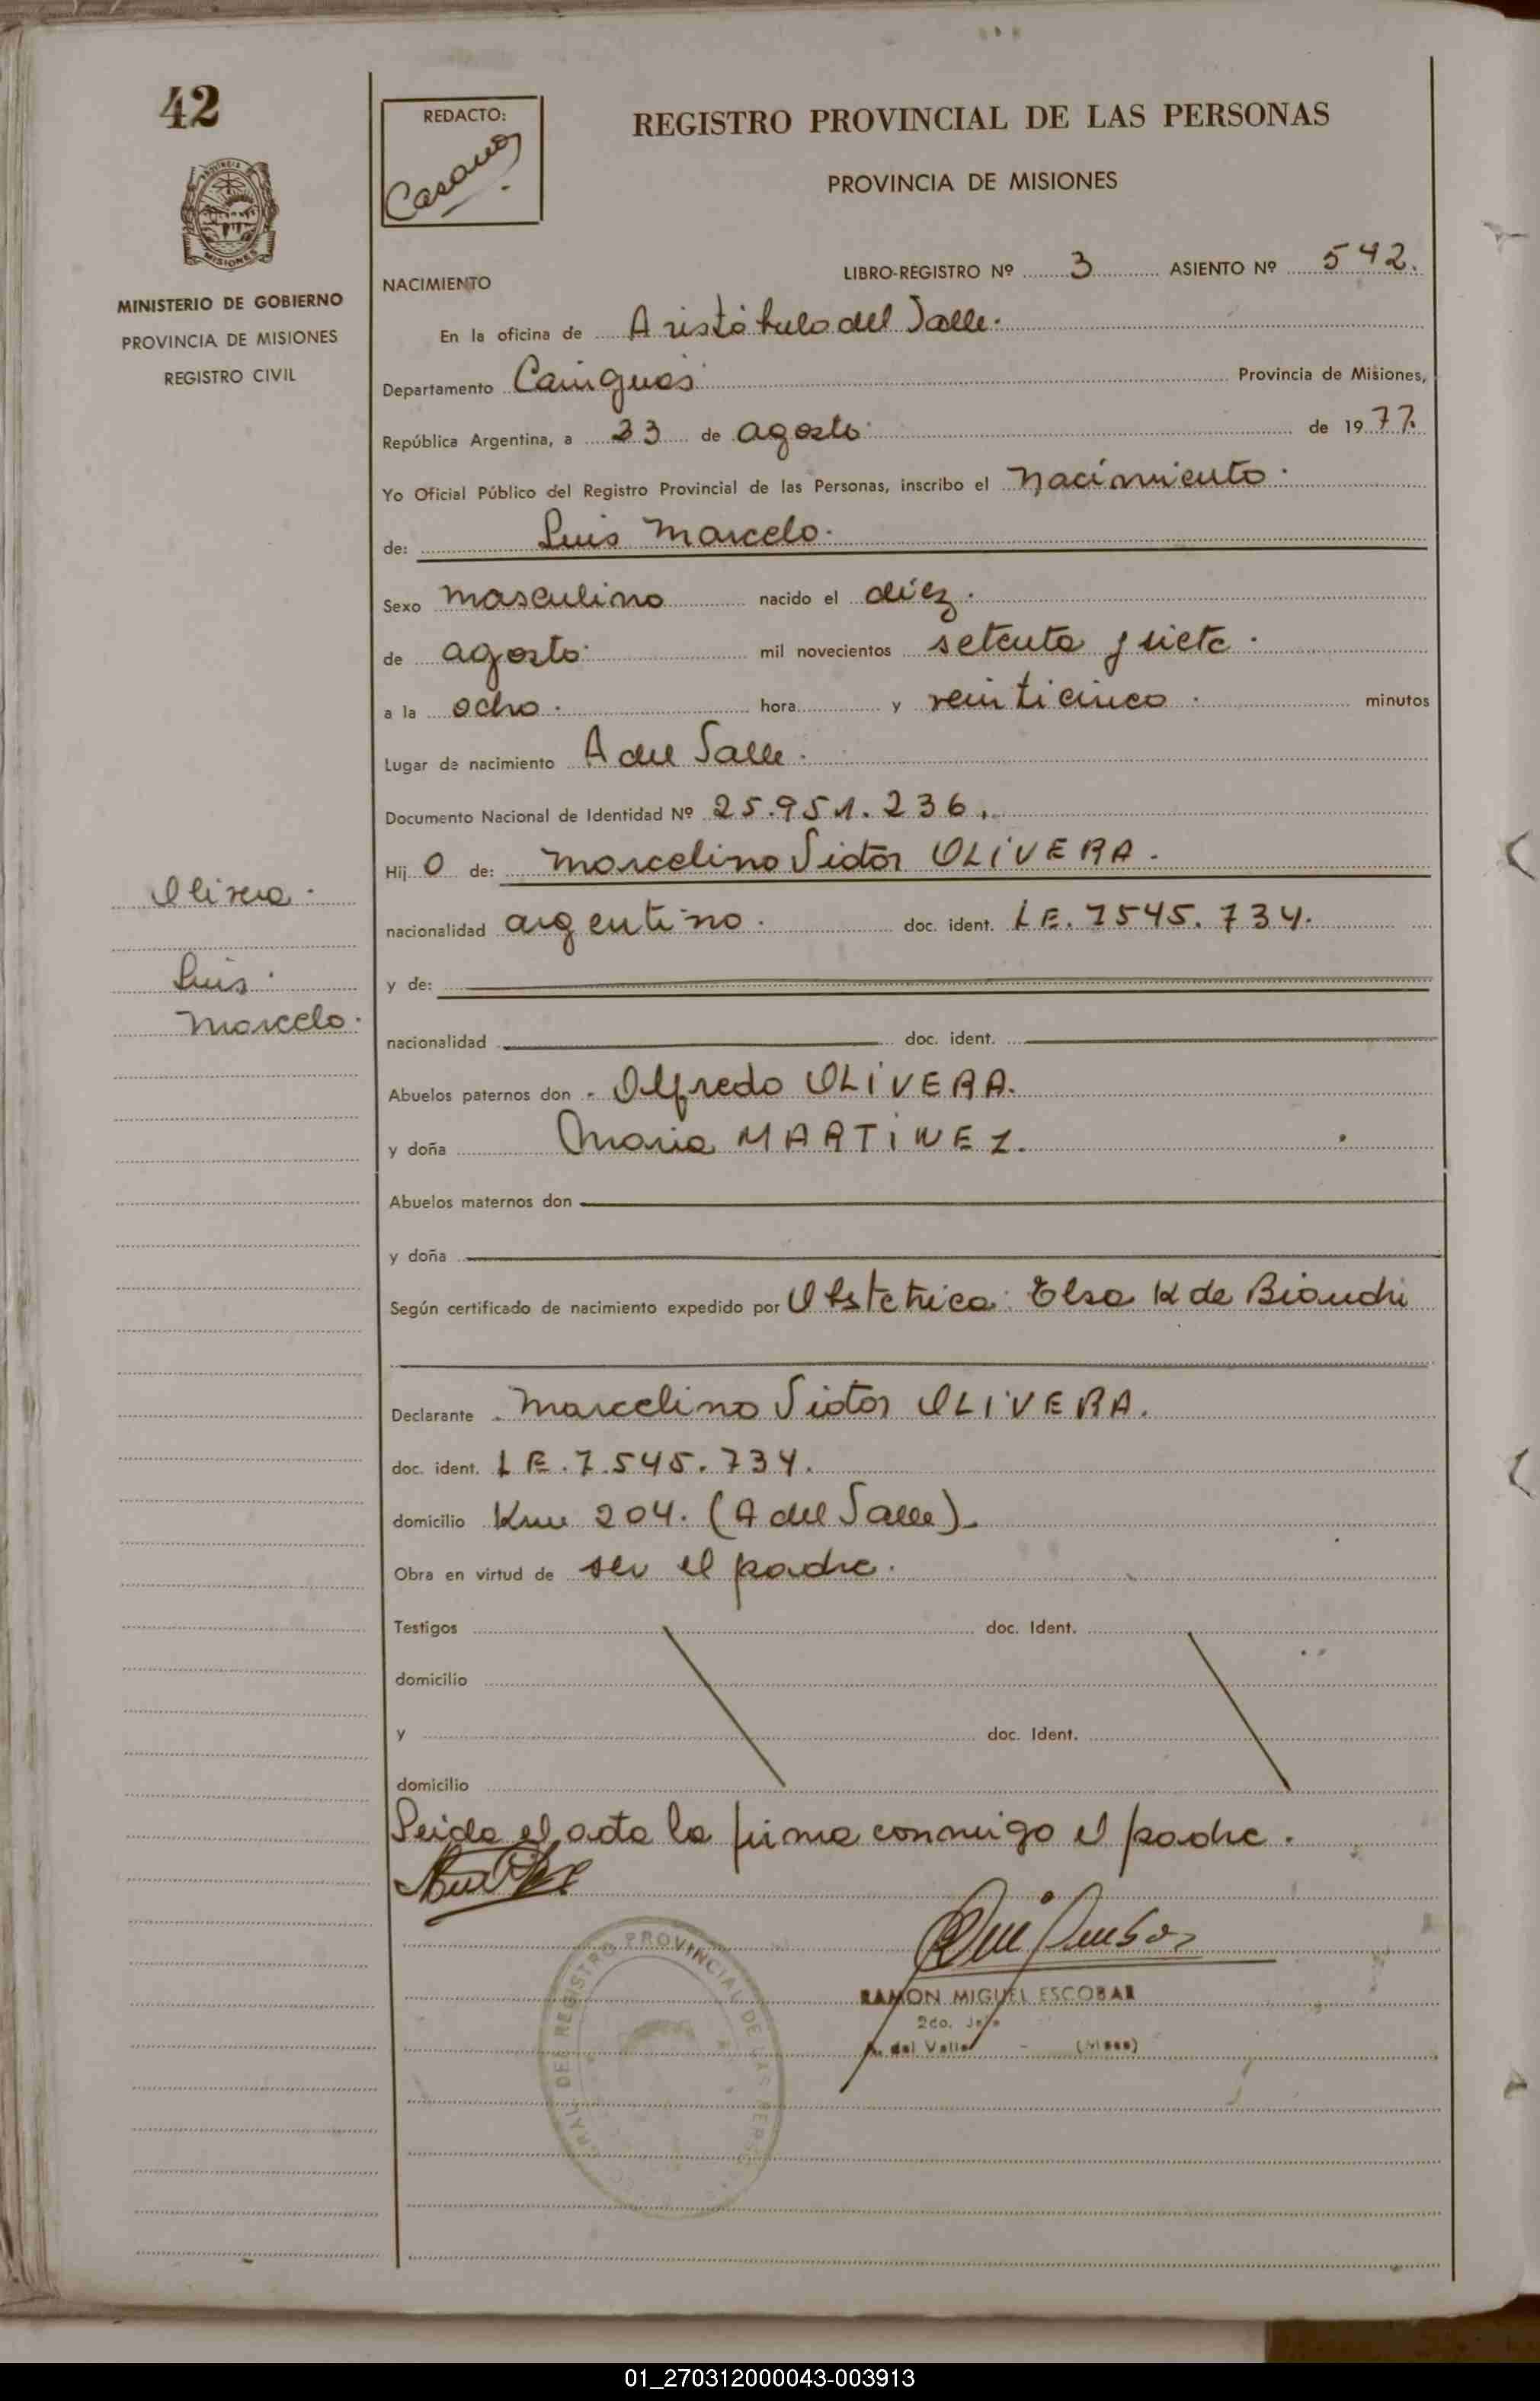 42
REDACTO:
Casano
REGISTRO PROVINCIAL DE LAS PERSONAS
PROVINCIA DE MISIONES
PROVINCIA DE
MISIONES
MINISTERIO DE GOBIERNO
PROVINCIA DE MISIONES
REGISTRO CIVIL
NACIMIENTO
LIBRO-REGISTRO Nº 3 ASIENTO Nº 542.
En la oficina de Aristóbulo del Valle.
Departamento Cainguas Provincia de Misiones,
República Argentina, a 23 de agosto de 1977.
Yo Oficial Público del Registro Provincial de las Personas, inscribo el nacimiento.
de: Luis Marcelo.
Sexo masculino nacido el diéz.
de agosto. mil novecientos setenta y siete.
a la ocho. hora y veinticinco. minutos
Lugar de nacimiento A del Valle.
Documento Nacional de Identidad Nº 25.951.236.
Hij o de: Marcelino Victor OLIVERA.
nacionalidad argentino. doc. ident. LE. 7545.734.
y de:
nacionalidad doc. ident.
Olivera.
Luis.
Marcelo.
Abuelos paternos don Alfredo OLIVERA.
y doña Maria MARTINEZ.
Abuelos maternos don
y doña
Según certificado de nacimiento expedido por Obstetrica: Elsa K de Bianchi
Declarante Marcelino Victor OLIVERA.
doc. ident. LE.7.545.734.
domicilio Km 204. (A del Valle).
Obra en virtud de ser el padre.
Testigos doc. Ident.
domicilio
y doc. Ident.
domicilio
Leida el acta la firma conmigo el padre.
DEL REGISTRO PROVINCIAL DE LAS PERSO
RAMON MIGUEL ESCOBAR
2do. Jefe
A. del Valle - (Mnes)
01_270312000043-003913